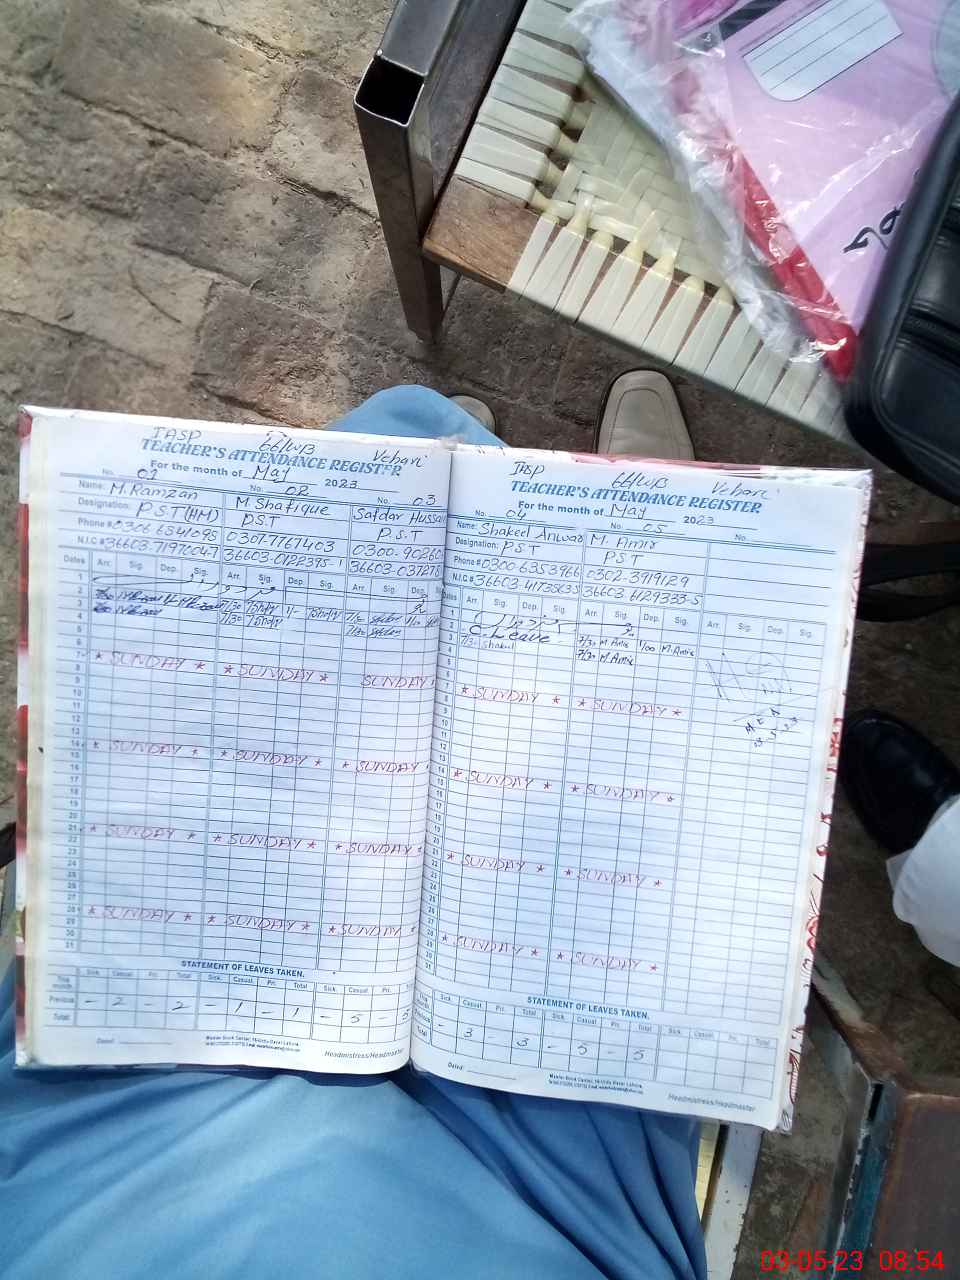 IASP 66/WB Vehari
TEACHER'S ATTENDANCE REGISTER
For the month of May 2023
No. 01 No. 02 No. 03
Name: M. Ramzan M. Shafique Safdar Hussain
Designation: PST (HM) PST P.S.T
Phone # 0306 6541095 0307-7767403 0300-90260
N.I.C # 36603-7197004-7 36603-0122395-1 36603-037278
Dates Arr. Sig. Dep. Sig. Arr. Sig. Dep. Sig. Arr. Sig. Dep.
1
2
3
4
5
6
7 * SUNDAY * * SUNDAY * SUNDAY
8
9
10
11
12
13
14 * SUNDAY * * SUNDAY * * SUNDAY
15
16
17
18
19
20
21 * SUNDAY * * SUNDAY * * SUNDAY
22
23
24
25
26
27
28 * SUNDAY * * SUNDAY * * SUNDAY *
29
30
31
STATEMENT OF LEAVES TAKEN.
Sick. Casual. Pri. Total Sick. Casual. Pri. Total Sick. Casual. Pri.
This month
Previous - 2 - 2 - 1 - 1 - 5 - 5
Total:
Dated:
Headmistress/Headmaster
IASP 66/WB Vehari
TEACHER'S ATTENDANCE REGISTER
For the month of May 2023
No. 04 No. 05 No.
Name: Shakeel Anwar M. Amir
Designation: PST PST
Phone # 0300-6353966 0302-3919129
N.I.C # 36603-4173863-5 36603-6129333-5
Dates Arr. Sig. Dep. Sig. Arr. Sig. Dep. Sig. Arr. Sig. Dep. Sig.
1
2 C. Leave 7/30 M. Amir 1/00 M. Amir
3 7/30 Shakeel 7/30 M. Amir
4
5
6
7 * SUNDAY * * SUNDAY *
8
9
10
11
12
13
14 * SUNDAY * * SUNDAY *
15
16
17
18
19
20
21 * SUNDAY * * SUNDAY *
22
23
24
25
26
27
28 * SUNDAY * * SUNDAY *
29
30
31
MEA
03-5-23
STATEMENT OF LEAVES TAKEN.
Sick. Casual. Pri. Total Sick. Casual. Pri. Total Sick. Casual. Pri. Total
This month
Previous - 3 - 3 - 5 - 5
Total
Dated:
Headmistress/Headmaster
03-05-23 08:54